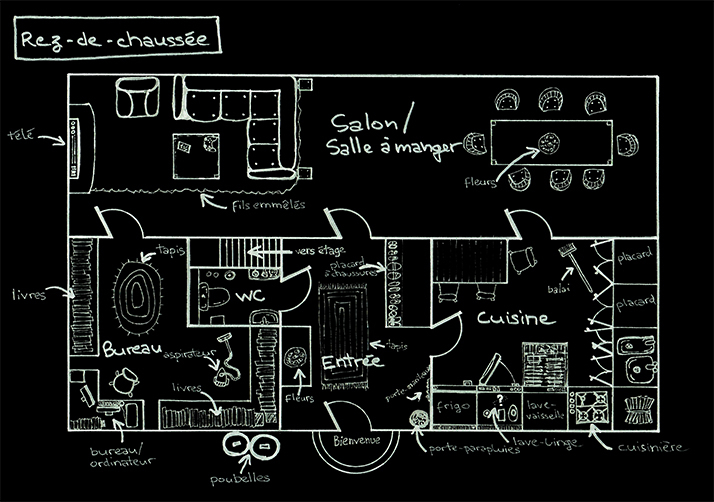 Rez-de-chaussée
télé
Salon/
Salle à manger
fleurs
fils emmêlés
tapis
vers étage
placard
à chaussures
placard
balai
livres
WC
placard
Cuisine
Bureau
aspirateur
Entrée
tapis
livres
Fleurs
porte-manteau
frigo
?
lave-
vaisselle
bureau/
ordinateur
poubelles
Bienvenue
porte-parapluies
lave-linge
cuisinière